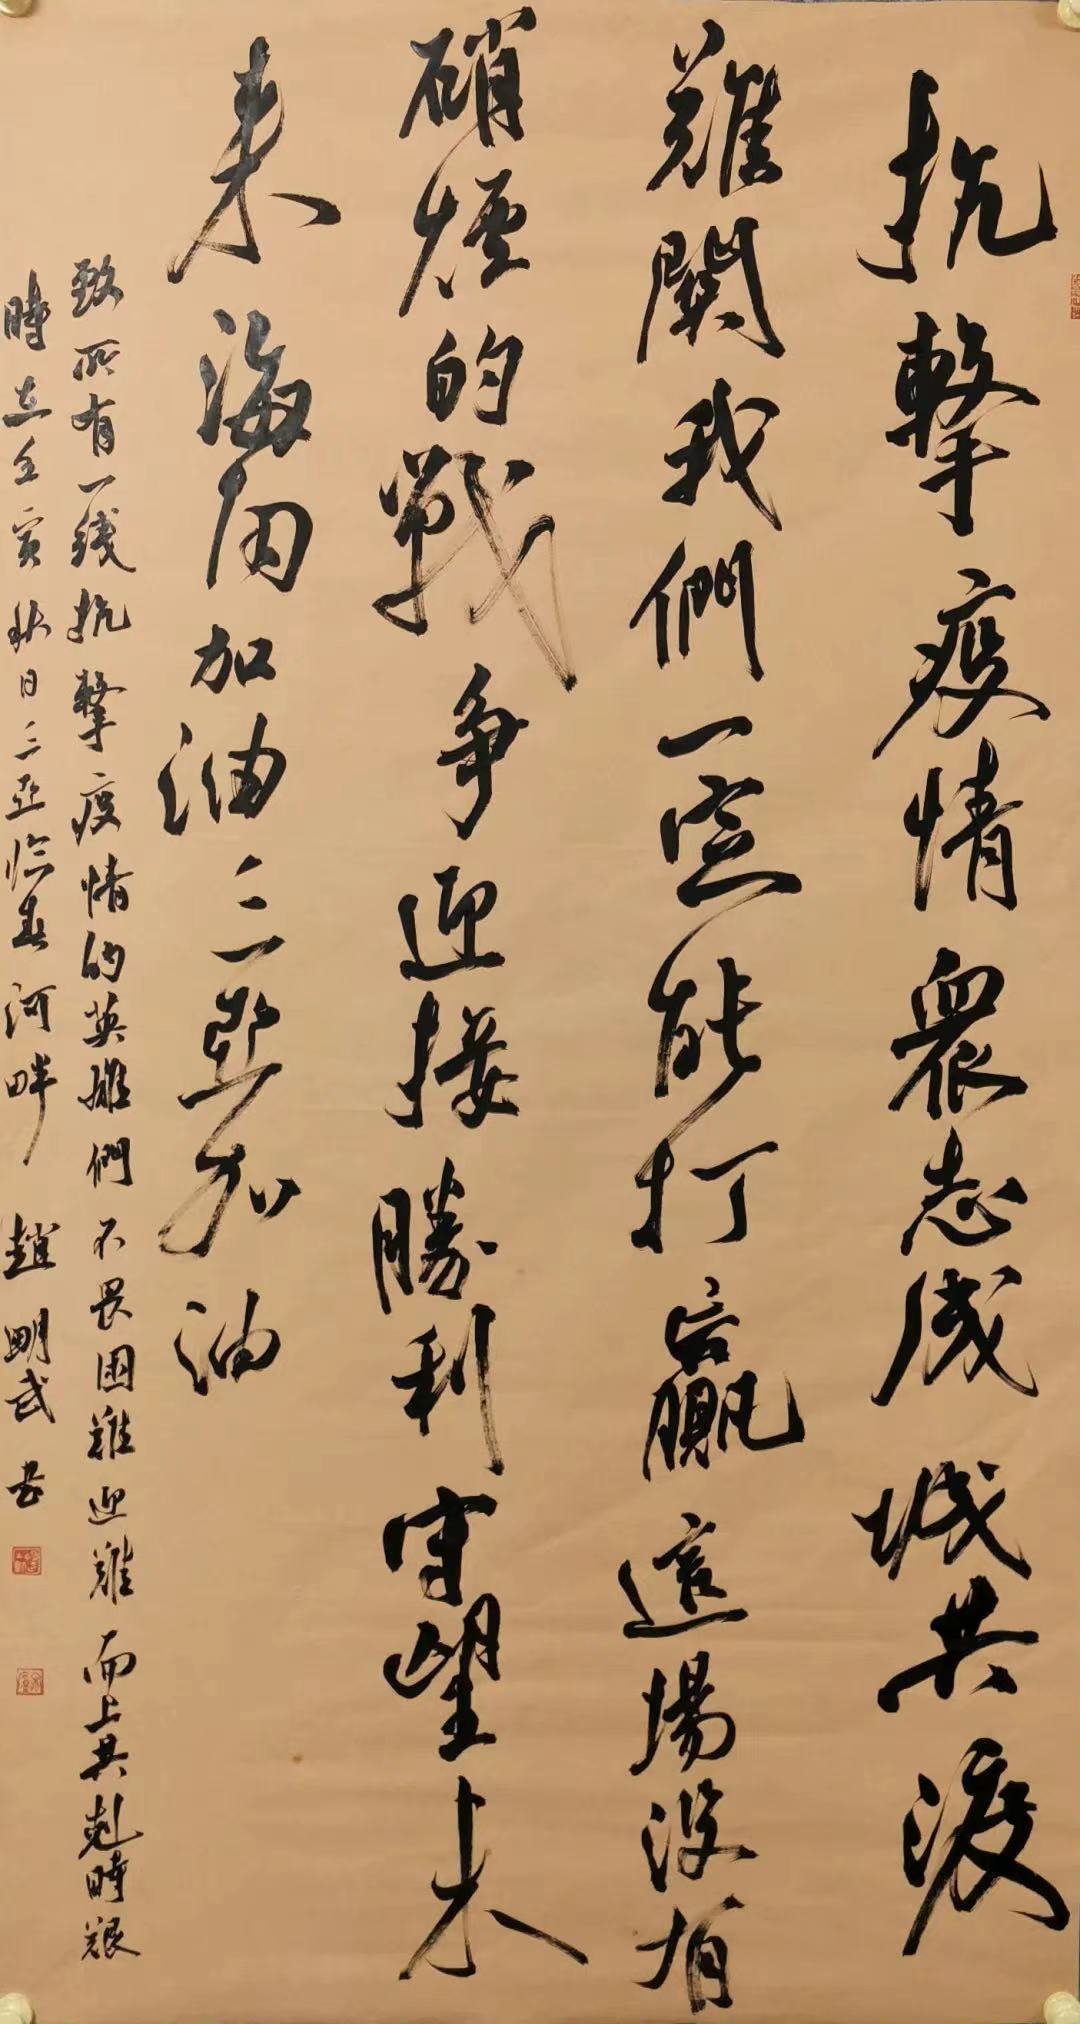 抗擊疫情衆志成城共渡
難關我們一定能打贏這場没有
硝煙的戰争迎接勝利守望未
来海南加油三亞加油
致所有一线抗擊疫情的英雄們不畏困難迎難而上共剋時艱
時在壬寅秋日三亞临春河畔 趙明武书